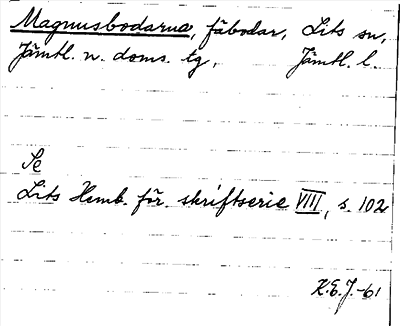 Magnusbodarna, fäbodar, Lits sn,
Jämtl. n. doms. tg, Jämtl. l.
Se
Lits Hemb. för. skriftserie VIII, s. 102
K.E.J.-61